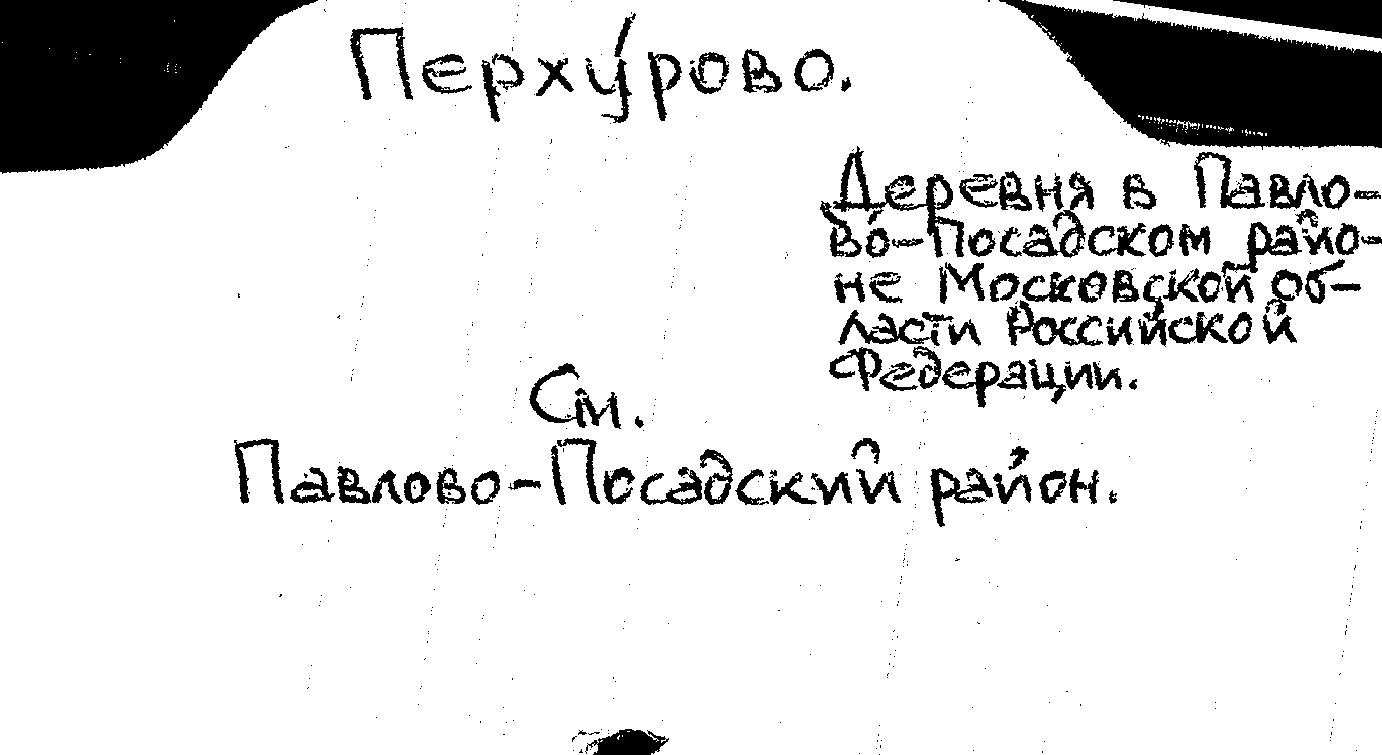 Перху́рово.
Деревня в Павло-
во́-Посадском райо-
не Московской об-
ласти Российской
Федерации.
См.
Павлово-Посадский район.